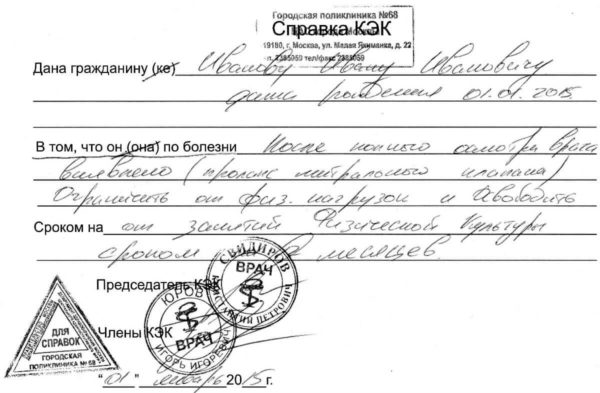 Городская поликлиника №68
Справка КЭК
г. Москва, ул. Малая Якиманка, д. 22
тел/факс
Дана гражданину (ке) Иванову Ивану Ивановичу
дата рождения 01.01.2015
В том, что он (она) по болезни После полного осмотра врача
выявлено (пролапс митрального клапана)
Ограничить от физ. нагрузок и
Сроком на от занятий Физической Культуры
сроком месяцев.
Председатель КЭК
СВИДИРОВ
ВРАЧ
ПЕТРОВИЧ
Члены КЭК
ВРАЧ
ИГОРЬ ИГОРЕВИЧ
ДЛЯ
СПРАВОК
ГОРОДСКАЯ
ПОЛИКЛИНИКА № 68
"01" январь 2015г.